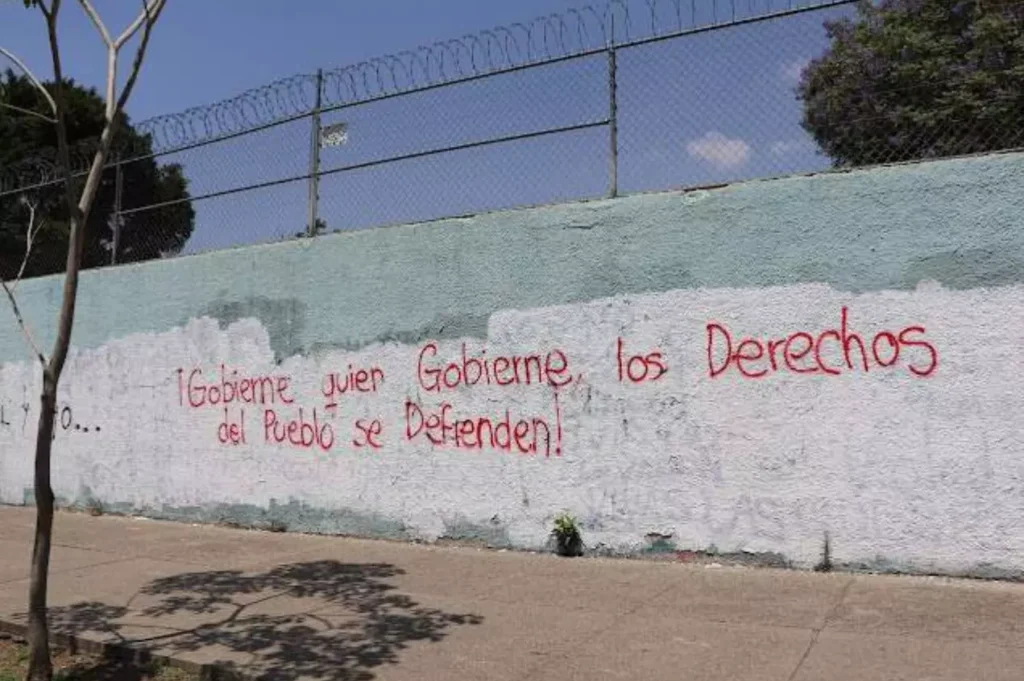 ¡Gobierne quien Gobierne, los Derechos
del Pueblo se Defienden!